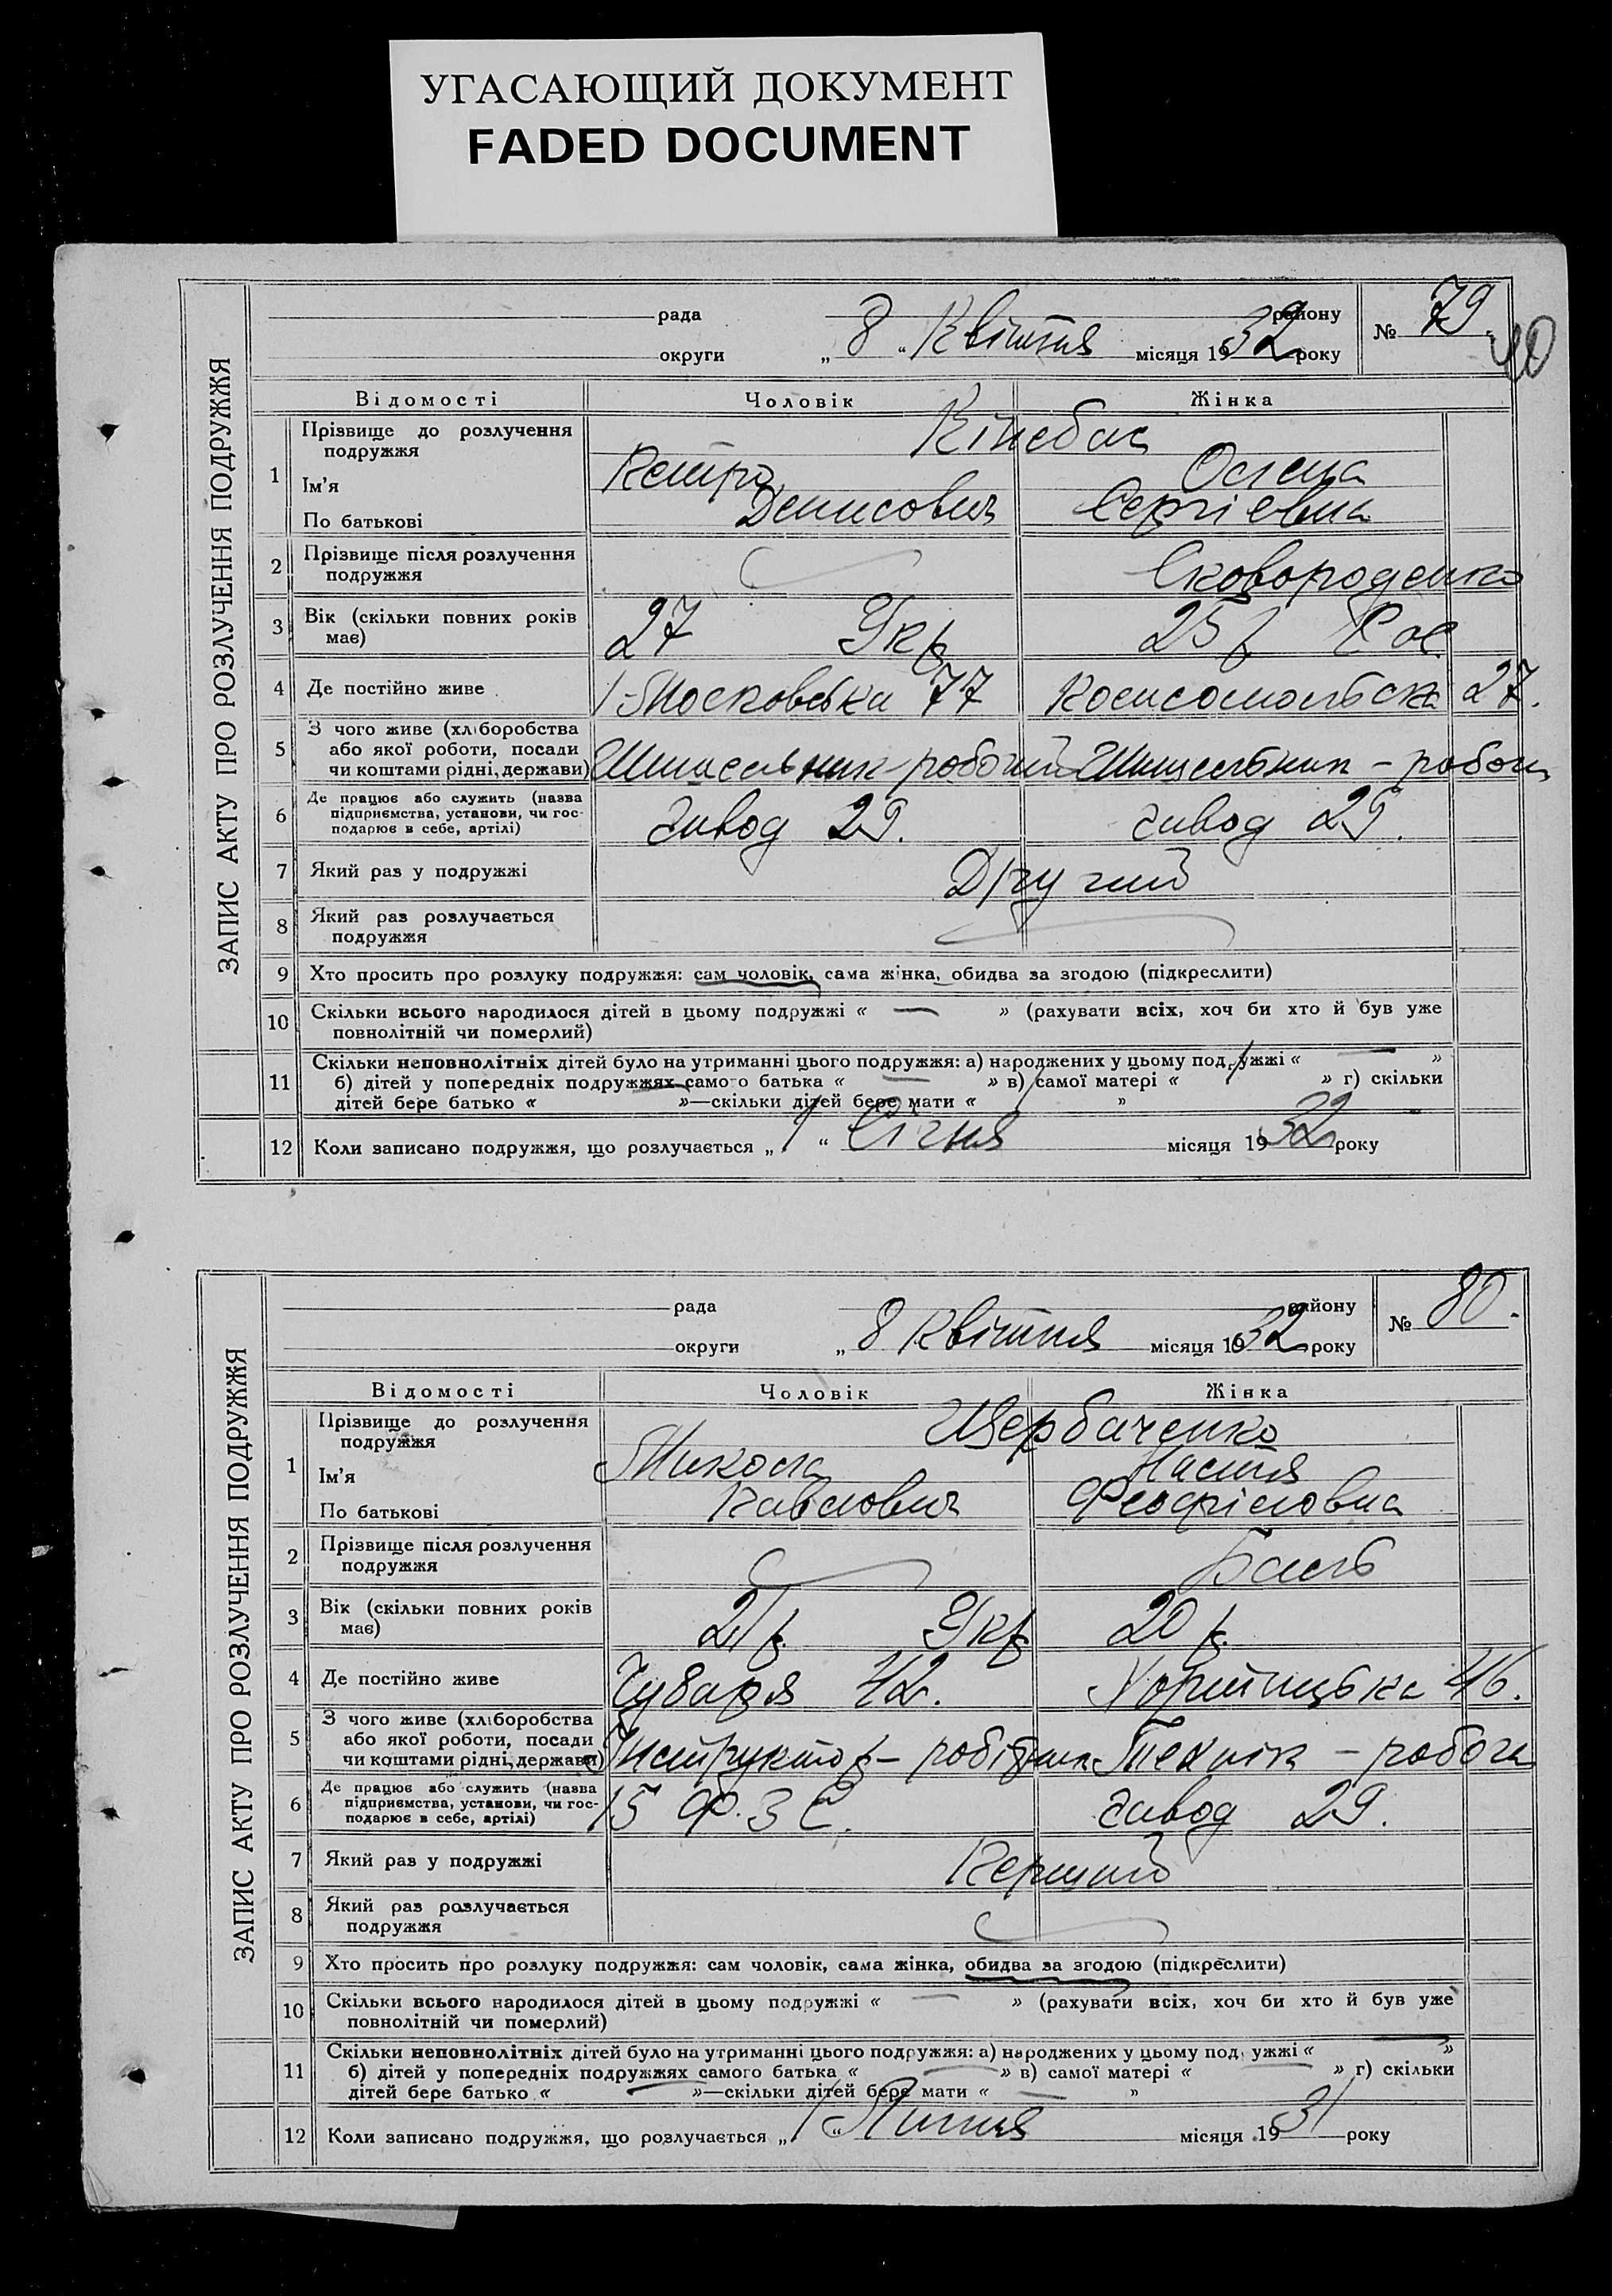 УГАСАЮЩИЙ ДОКУМЕНТ
FADED DOCUMENT
ЗАПИС АКТУ ПРО РОЗЛУЧЕННЯ ПОДРУЖЖЯ
рада району № 79
округи „ 8 “ Квітня місяця 1932 року
40
Відомості Чоловік Жінка
1 Прізвище до розлучення подружжя
Ім’я Петро Олена
По батькові Денисович Сергієвна
2 Прізвище після розлучення
подружжя Сковороденко
3 Вік (скільки повних років
має) 27 Укр 25 р Рос
4 Де постійно живе Московська 77 Комсомольська 27.
5 З чого живе (хліборобства
або якої роботи, посади
чи коштами рідні, держави)
6 Де працює або служить (назва
підприємства, установи, чи гос-
подарює в себе, артілі) завод 29. завод 29.
7 Який раз у подружжі Другий
8 Який раз розлучається
подружжя
9 Хто просить про розлуку подружжя: сам чоловік, сама жінка, обидва за згодою (підкреслити)
10 Скільки всього народилося дітей в цьому подружжі « — » (рахувати всіх, хоч би хто й був уже
повнолітній чи померлий)
11 Скільки неповнолітніх дітей було на утриманні цього подружжя: а) народжених у цьому подружжі « — »
б) дітей у попередніх подружжях самого батька « — » в) самої матері « » г) скільки
дітей бере батько « »—скільки дітей бере мати « »
12 Коли записано подружжя, що розлучається „ 1 “ Січня місяця 1932 року
ЗАПИС АКТУ ПРО РОЗЛУЧЕННЯ ПОДРУЖЖЯ
рада району № 80.
округи „ 8 Квітня місяця 1932 року
Відомості Чоловік Жінка
1 Прізвище до розлучення
подружжя Щербаченко
Ім’я Микола Настя
По батькові Павлович Феофіловна
2 Прізвище після розлучення
подружжя Баль
3 Вік (скільки повних років
має) 21 р. Укр 20 р.
4 Де постійно живе Чубаря 42. Хортицька 46.
5 З чого живе (хліборобства
або якої роботи, посади
чи коштами рідні, держави) Інструктор – робітник Технік – робоча
6 Де працює або служить (назва
підприємства, установи, чи гос-
подарює в себе, артілі) 15 Ф.З.С. завод 29.
7 Який раз у подружжі Перший
8 Який раз розлучається
подружжя
9 Хто просить про розлуку подружжя: сам чоловік, сама жінка, обидва за згодою (підкреслити)
10 Скільки всього народилося дітей в цьому подружжі « — » (рахувати всіх, хоч би хто й був уже
повнолітній чи померлий)
11 Скільки неповнолітніх дітей було на утриманні цього подружжя: а) народжених у цьому подружжі « — »
б) дітей у попередніх подружжях самого батька « — » в) самої матері « — » г) скільки
дітей бере батько « — »—скільки дітей бере мати « — »
12 Коли записано подружжя, що розлучається „ 1 “ Липня місяця 1931 року